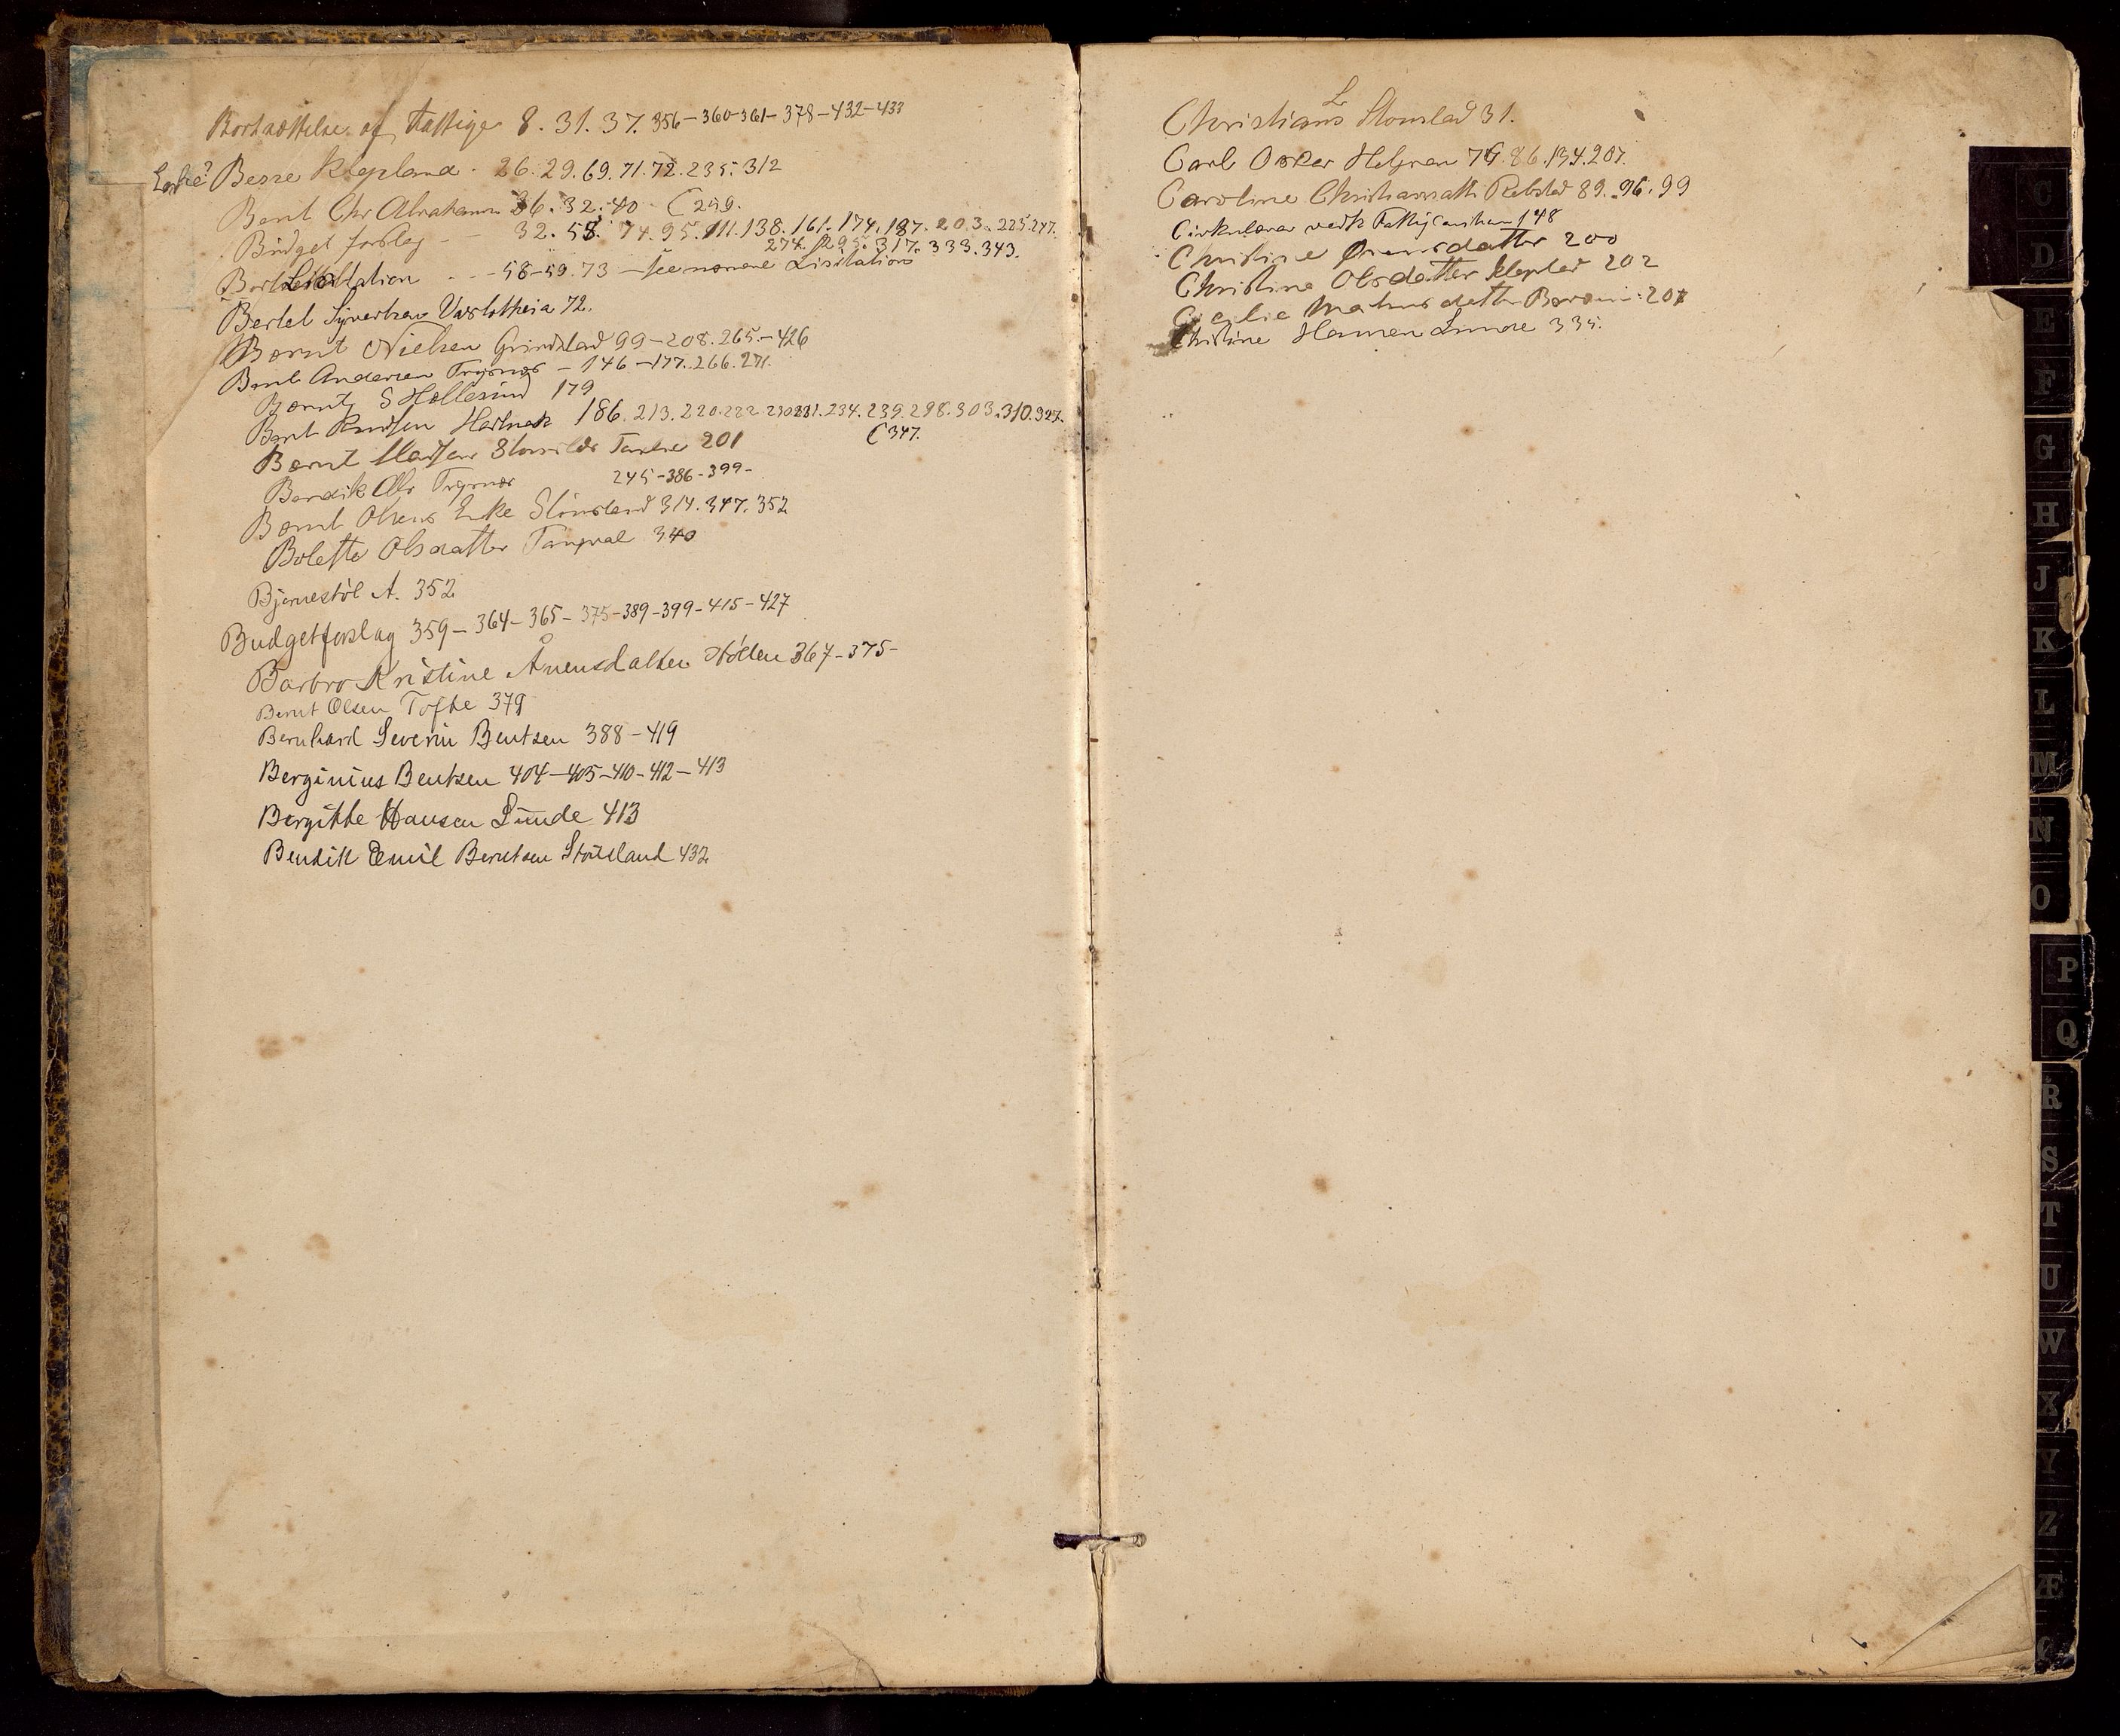 Bortsættelse af Fattige 8. 31. 37. 356-360-361-378-432-433
Besse Klepland. 26.29.69.71.72.235.312
Bernt Chr Abrahams 36.32.40 (259.
Budget forslag 32. 58. 74.95.111.138.161.174.187.203.225.247.
274.295.317.333.343.
58-59.73 - see nærmere Lisitation
Bertel Syvertsen 72.
Bernt Nielsen Grindland 99-208.265.-426
Bernt Andersen Trysnes - 146-177.266.271.
Bernt S Hollesund 179
Bernt Knudsen 186.213.220.222.230.231.234.239.298.303.310.327.
(347.
Bernt 201
Bendik Ols Trysnes 245-386-399-
Bernt Olsens Enke Stousland 314.347.352
Bolette Olsdatter Tangval 340
Bjørnestöl A. 352
Budgetforslag 359-364-365-375-389-399-415-427
Barbro Kristine Ånensdatter Höllen 367-375-
Bernt Olsen Tofte 379
Bernhard Severin Bentsen 388-419
Berginius Bentsen 404-405-410-412-413
Bergitte Hansen Lunde 413
Bendik Emil Berntsen Stousland 432
Christians Stousland 31.
Carl Osker Helgesen 76.86.134.207.
Caroline Christiansdatt. Rebstad 89.96.99
Cirkulærer vedk 148
Christine 200
Christine Olsdatter Klepland 202
207
Christine Hansen Lunde 335.
C
D
E
F
G
H
J
K
L
M
N
O
P
Q
R
S
T
U
W
X
Y
Z
Æ
Ø